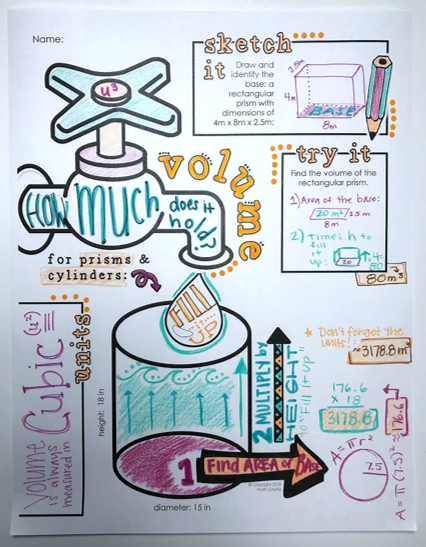 Name:
sketch
it
Draw and
identify the
base: a
rectangular
prism with
dimensions of
4m x 8m x 2.5m:
2.5m
4m
BASE
8m
u³
volume
HOW MUCH does it
hold?
for prisms &
cylinders:
try it
Find the volume of the
rectangular prism.
1) Area of the base:
20 m² 2.5m
8m
2) times h to
fill
it
up:
20
80
80m³
Fill
it
UP
Volume
is always
measured in
Cubic
units
height: 18 in
2 MULTIPLY by
HEIGHT
to "Fill it Up"
1 Find AREA of BASE
diameter: 15 in
* Don't forget the
units!:
176.6
x 18
3178.8
A = πr²
7.5
A = π(7.5)² ≈ 176.6